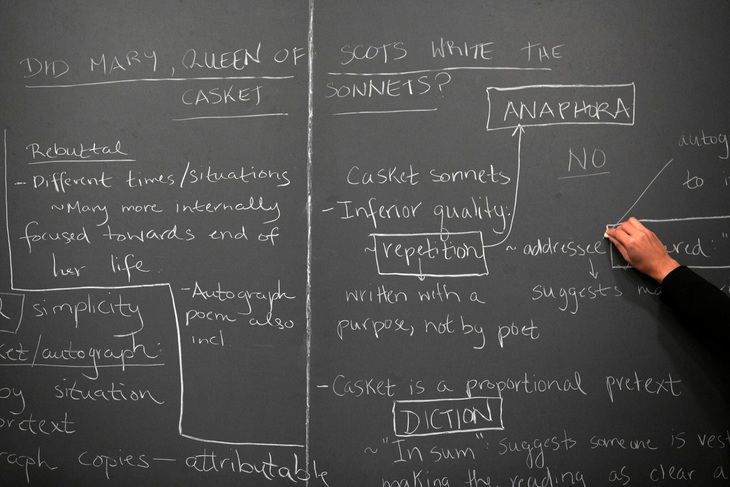 DID MARY, QUEEN OF SCOTS WRITE THE
CASKET SONNETS?
Rebuttal
- Different times/situations
~ Mary more internally
focused towards end of
her life.
simplicity
ket/autograph:
by situation
pretext
raph copies — attributable
- Autograph
poem also
incl
ANAPHORA
NO
Casket sonnets
- Inferior quality:
~ repetition
written with a
purpose, not by poet
~ addressee
suggests
autog
to i
red: "
- Casket is a proportional pretext
DICTION
~ "In sum": suggests someone is vest
making the reading as clear a